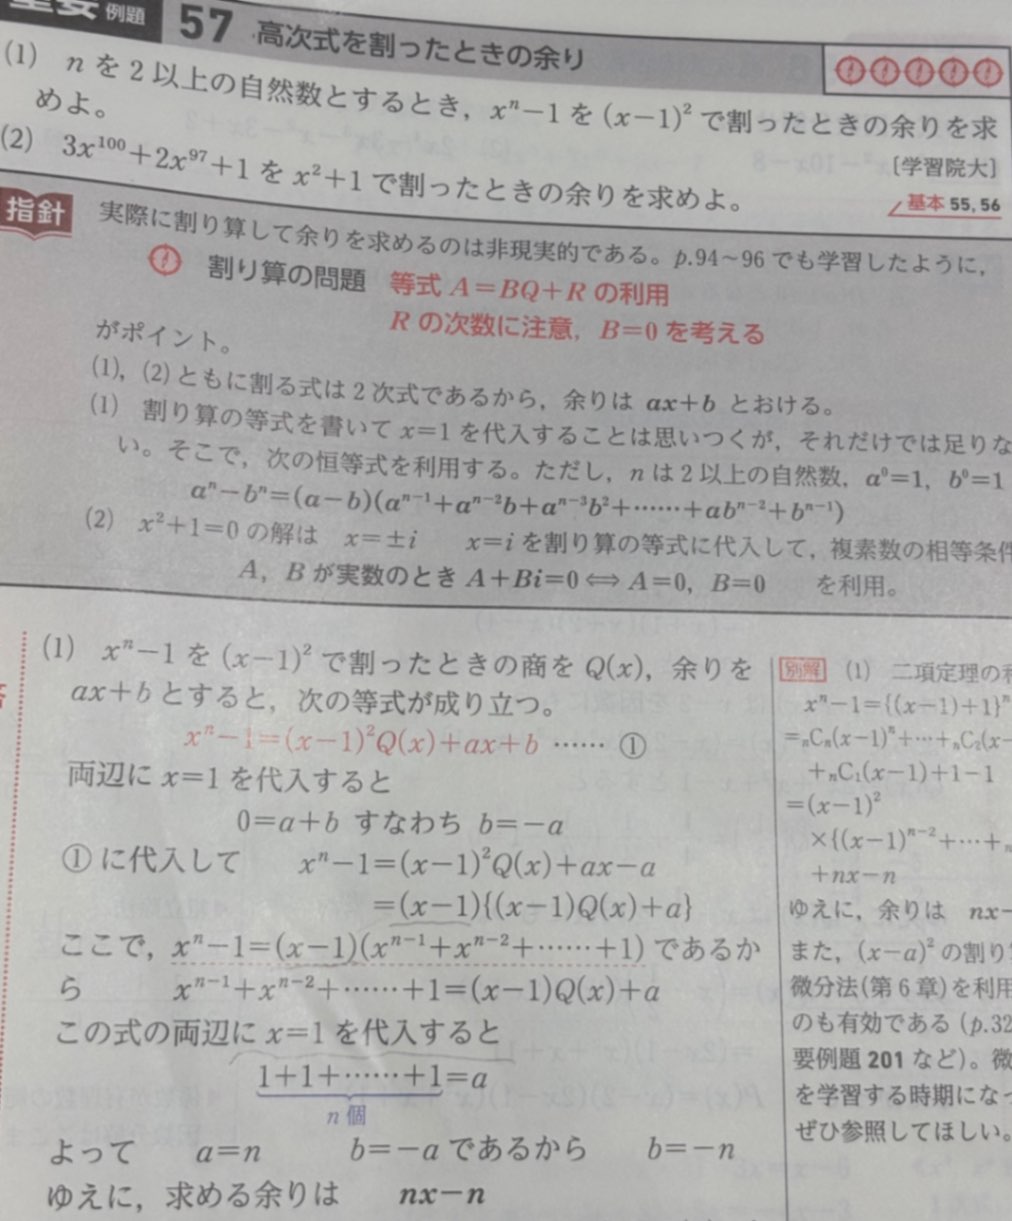 重要 例題 57 高次式を割ったときの余り
(1) nを2以上の自然数とするとき，xⁿ−1を(x−1)²で割ったときの余りを求
めよ。
[学習院大]
(2) 3x¹⁰⁰+2x⁹⁷+1をx²+1で割ったときの余りを求めよ。
基本 55, 56
指針 実際に割り算して余りを求めるのは非現実的である。p.94〜96でも学習したように，
割り算の問題 等式A=BQ+Rの利用
Rの次数に注意，B=0を考える
がポイント。
(1)，(2)ともに割る式は2次式であるから，余りは ax+b とおける。
(1) 割り算の等式を書いてx=1を代入することは思いつくが，それだけでは足りな
い。そこで，次の恒等式を利用する。ただし，nは2以上の自然数，a⁰=1，b⁰=1
aⁿ−bⁿ=(a−b)(aⁿ⁻¹+aⁿ⁻²b+aⁿ⁻³b²+……+abⁿ⁻²+bⁿ⁻¹)
(2) x²+1=0の解は x=±i x=iを割り算の等式に代入して，複素数の相等条件
A，Bが実数のとき A+Bi=0⟺A=0，B=0 を利用。
(1) xⁿ−1を(x−1)²で割ったときの商をQ(x)，余りを
ax+bとすると，次の等式が成り立つ。
xⁿ−1=(x−1)²Q(x)+ax+b ……①
両辺にx=1を代入すると
0=a+b すなわち b=−a
①に代入して xⁿ−1=(x−1)²Q(x)+ax−a
=(x−1){(x−1)Q(x)+a}
ここで，xⁿ−1=(x−1)(xⁿ⁻¹+xⁿ⁻²+……+1)であるか
ら xⁿ⁻¹+xⁿ⁻²+……+1=(x−1)Q(x)+a
この式の両辺にx=1を代入すると
1+1+……+1=a
n個
よって a=n b=−aであるから b=−n
ゆえに，求める余りは nx−n
別解 (1) 二項定理の
xⁿ−1={(x−1)+1}ⁿ
=ₙCₙ(x−1)ⁿ+…+ₙC₂(x−
+ₙC₁(x−1)+1−1
=(x−1)²
×{(x−1)ⁿ⁻²+…+
+nx−n
ゆえに，余りは nx−
また，(x−a)²の割り
微分法(第6章)を利用
のも有効である(p.32
要例題201など)。微
を学習する時期になっ
ぜひ参照してほしい。